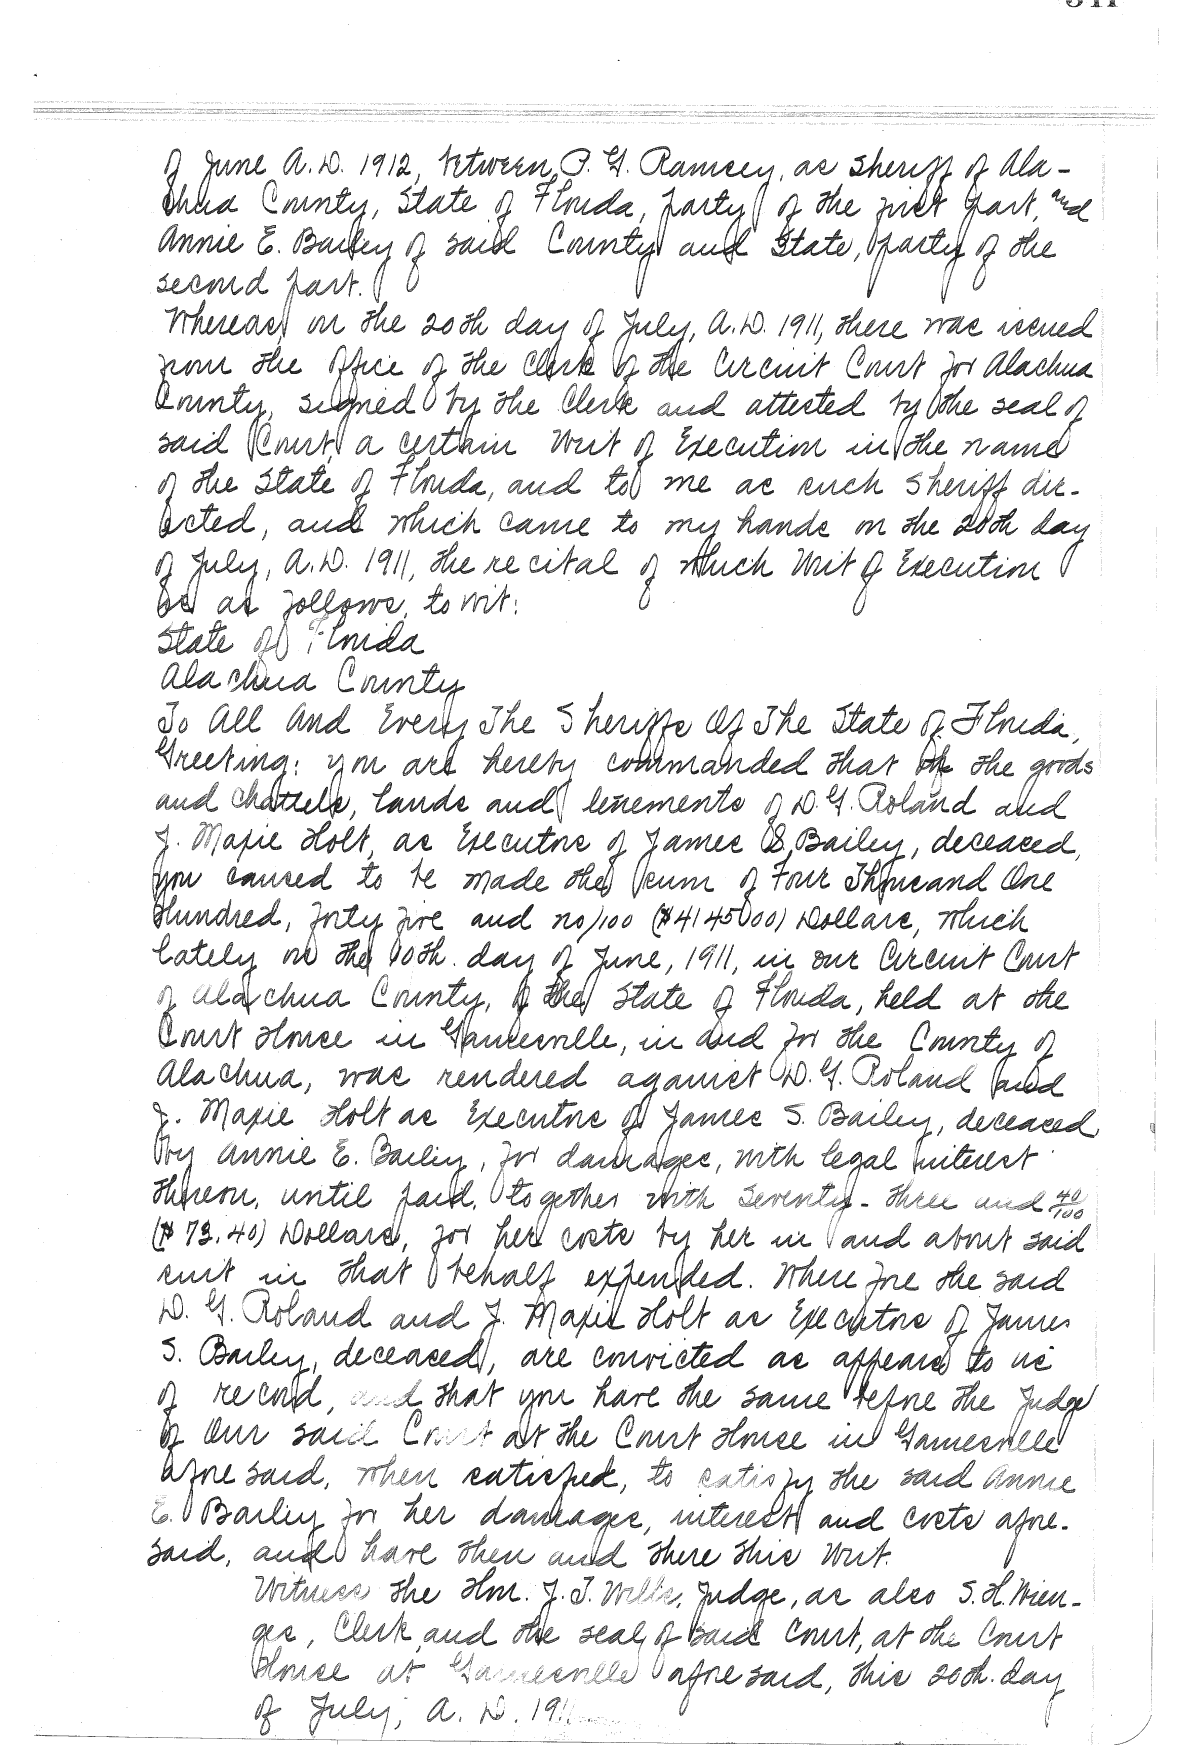 of June A.D. 1912, between P. G. Ramsey, as Sheriff of Ala-
chua County, State of Florida, party of the first part, and
Annie E. Bailey of said County and State, party of the
second part.
Whereas, on the 20th day of July, A.D. 1911, there was issued
from the Office of the Clerk of the Circuit Court for Alachua
County, signed by the Clerk and attested by the seal of
said Court, a certain Writ of Execution in the name
of the State of Florida, and to me as such Sheriff dir-
ected, and which came to my hands on the 20th day
of July, A.D. 1911, the recital of which Writ of Execution
is as follows, to wit:
State of Florida
Alachua County
To All And Every The Sheriffs Of The State of Florida,
Greeting: you are hereby commanded that of the goods
and chattels, lands and tenements of D. G. Roland and
J. Maxie Holt, as Executors of James S. Bailey, deceased,
you caused to be made the sum of Four Thousand One
Hundred, forty five and no/100 ($4145.00) Dollars, which
lately on the 10th. day of June, 1911, in our Circuit Court
of Alachua County, of the State of Florida, held at the
Court House in Gainesville, in and for the County of
Alachua, was rendered against D. G. Roland and
J. Maxie Holt as Executors of James S. Bailey, deceased
by Annie E. Bailey, for damages, with legal interest
thereon, until paid, together with Seventy-three and 40/100
($73.40) Dollars, for her costs by her in and about said
suit in that behalf expended. Where fore the said
D. G. Roland and J. Maxie Holt as Executors of James
S. Bailey, deceased, are convicted as appears to us
of record, and that you have the same before the Judge
of Our said Court at the Court House in Gainesville
afore said, when satisfied, to satisfy the said Annie
E. Bailey for her damages, interest and costs afore-
said, and have then and there this Writ.
Witness the Hon. J. T. Wills, Judge, as also S. H. Wien-
ges, Clerk, and the seal of said Court, at the Court
House at Gainesville afore said, this 20th. day
of July, A. D. 1911